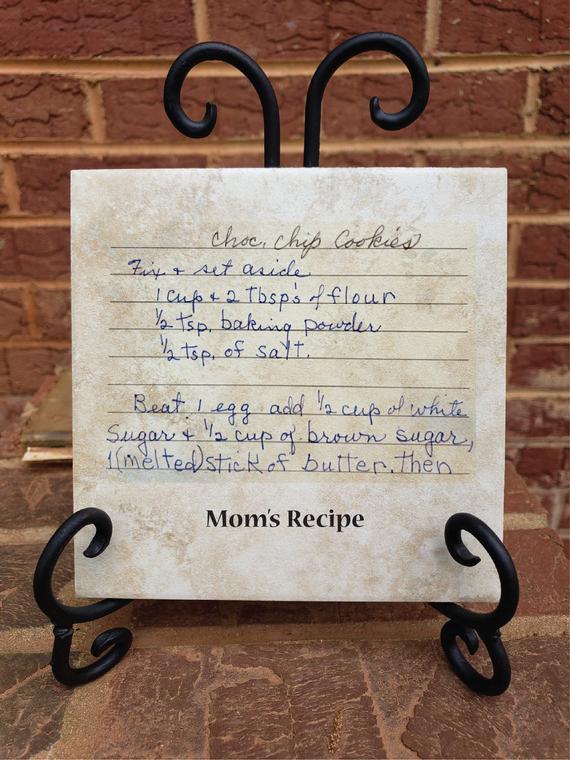 choc. chip Cookies
Fix + set aside
1 cup + 2 Tbsp's of flour
1/2 tsp. baking powder
1/2 tsp. of salt.
Beat 1 egg add 1/2 cup of white
Sugar + 1/2 cup of brown sugar,
1 (melted) stick of butter, then
Mom's Recipe